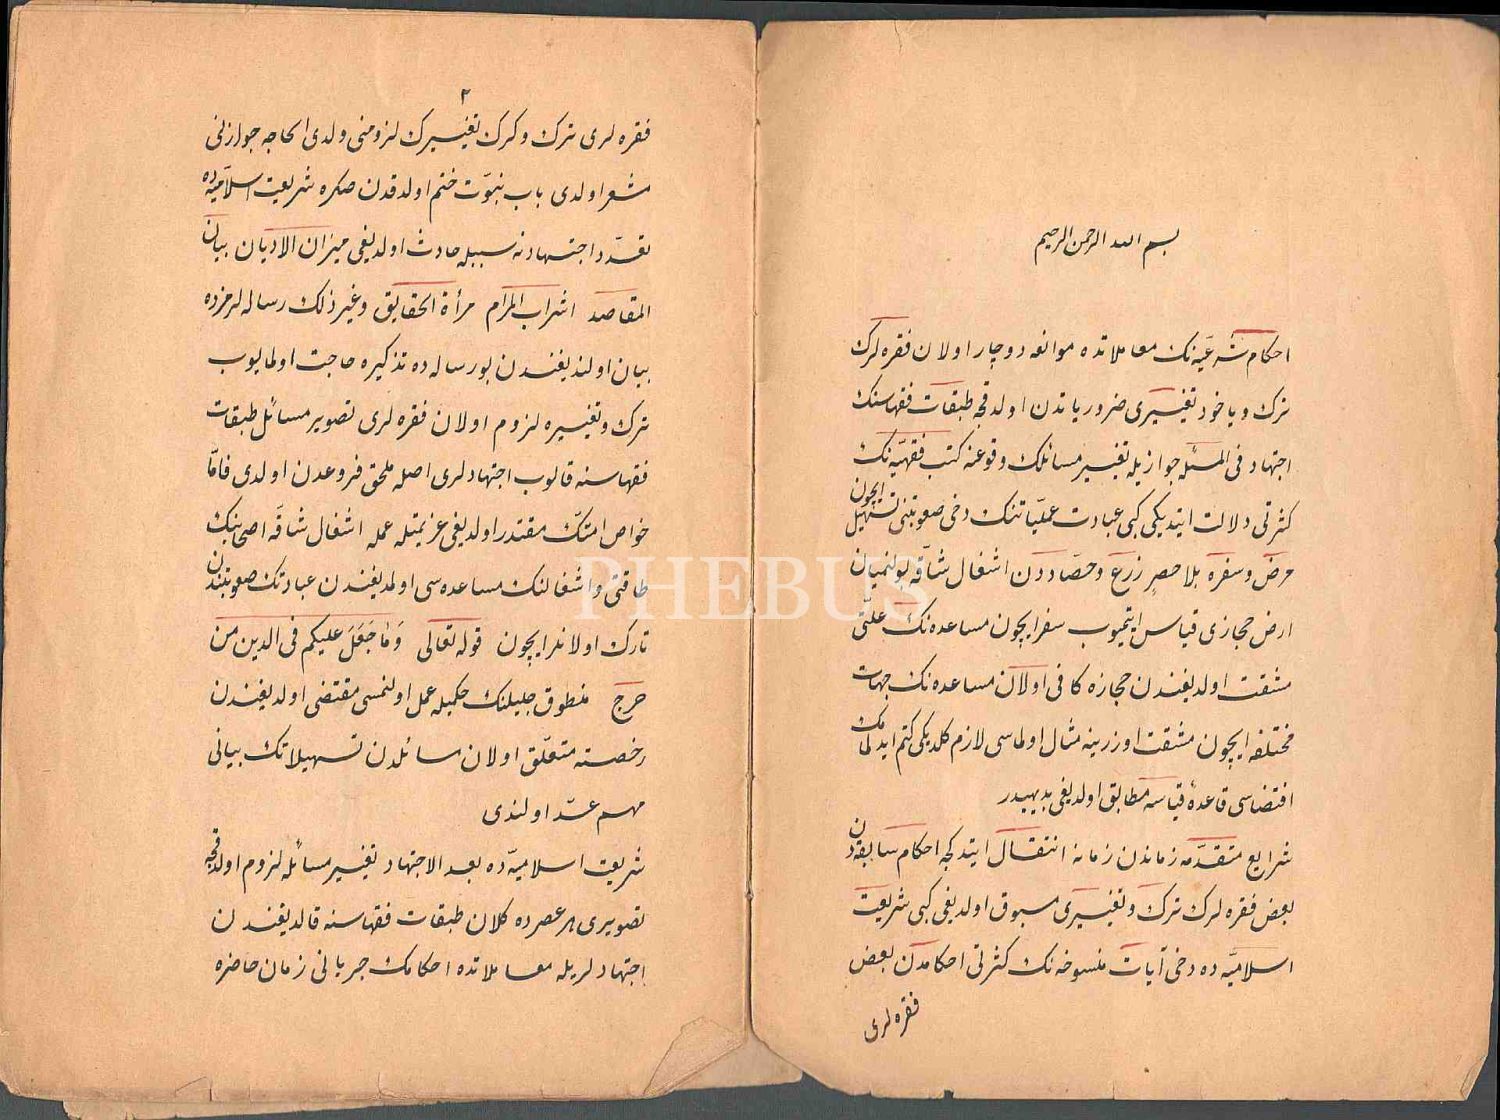 بسم الله الرحمن الرحيم
احكام شرعيه‌نك معاملاتده موانعه دوچار اولان فقره لرك
ترك ويا خود تغييرى ضرورياتدن اولدقجه طبقات فقهاسنك
اجتهاد فى المسئله جوازيله تغيير مسائلك وقوعنه كتب فقهيّه نك
كثرتى دلالت ايتديكى كبى عبادت عمليّاتنك دخى صعوبتنى تسهيل ايچون
مرض وسفره بلا حصر زرع وحصاددن اشغال شاقّه بولنميان
ارض حجازى قياس ايتميوب سفر ايچون مساعده نك علتى
مشقت اولديغندن حجازه كافى اولان مساعده نك جهات
مختلفه ايچون مشقت اوزرينه مثال اولماسى لازم كلديكى كتم ايدلمامك
اقتضاسى قاعدهٔ قياسه مطابق اولديغى بديهيدر
شرايع متقدّمه زماندن زمانه انتقال ايتدكجه احكام سابقه دن
بعض فقره لرك ترك وتغييرى مسبوق اولديغى كبى شريعت
اسلاميّه ده دخى آيات منسوخه نك كثرتى احكامدن بعض
فقره لرى
٢
فقره لرى ترك وكرك تغييرك لزومنى ولدى الحاجه جوازلنى
مشعر اولدى باب نبوّت ختم اولدقدن صكره شريعت اسلاميّه ده
تعدّد اجتهادنه سببيله حادث اولديغى ميزان الاديان بيان
المقاصد اشراب المرام مرأة الحقايق وغير ذلك رساله لرمزده
بيان اولنديغندن بو رساله ده تذكيره حاجت اولمايوب
ترك وتغييره لزوم اولان فقره لرى تصوير مسائل طبقات
فقهاسنه قالوب اجتهادلرى اصله ملحق فروعدن اولدى فامّا
خواص امتك مقتدر اولديغى عزيمتله عمله اشغال شاقّه اصحابنك
طاقتى واشغالنك مساعده سى اولمديغندن عبادتك صعوبتندن
تارك اولانلر ايچون قوله تعالى وَمَا جَعَلَ عليكم فى الدين من
حرج منطوق جليلنك حكميله عمل اولنمسى مقتضى اولديغندن
رخصته متعلّق اولان مسائلدن تسهيلاتك بيانى
مهم عدّ اولندى
شريعت اسلاميّه ده بعد الاجتهاد تغيير مسائله لزوم اولدقجه
تصويرى هر عصرده كلان طبقات فقهاسنه قالديغندن
اجتهادلريله معاملاتده احكامك جريانى زمان حاضره
PHEBUS